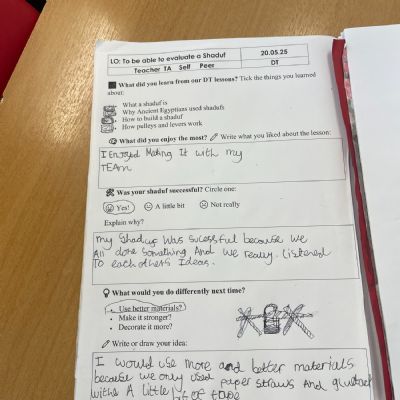 LO: To be able to evaluate a Shaduf
20.05.25
Teacher TA Self Peer
DT
What did you learn from our DT lessons? Tick the things you learned
about:
What a shaduf is
Why Ancient Egyptians used shadufs
How to build a shaduf
How pulleys and levers work
What did you enjoy the most? Write what you liked about the lesson:
I Enjoyed Making It with my
TEAm
Was your shaduf successful? Circle one:
Yes! A little bit Not really
Explain why?
my Shaduf Was Sucessful because we
All done Somthing And we really Listened
To each others Ideas.
What would you do differently next time?
Use better materials?
Make it stronger?
Decorate it more?
Write or draw your idea:
I would use more and better materials
because we only used paper straws And
withe A little bit of tape